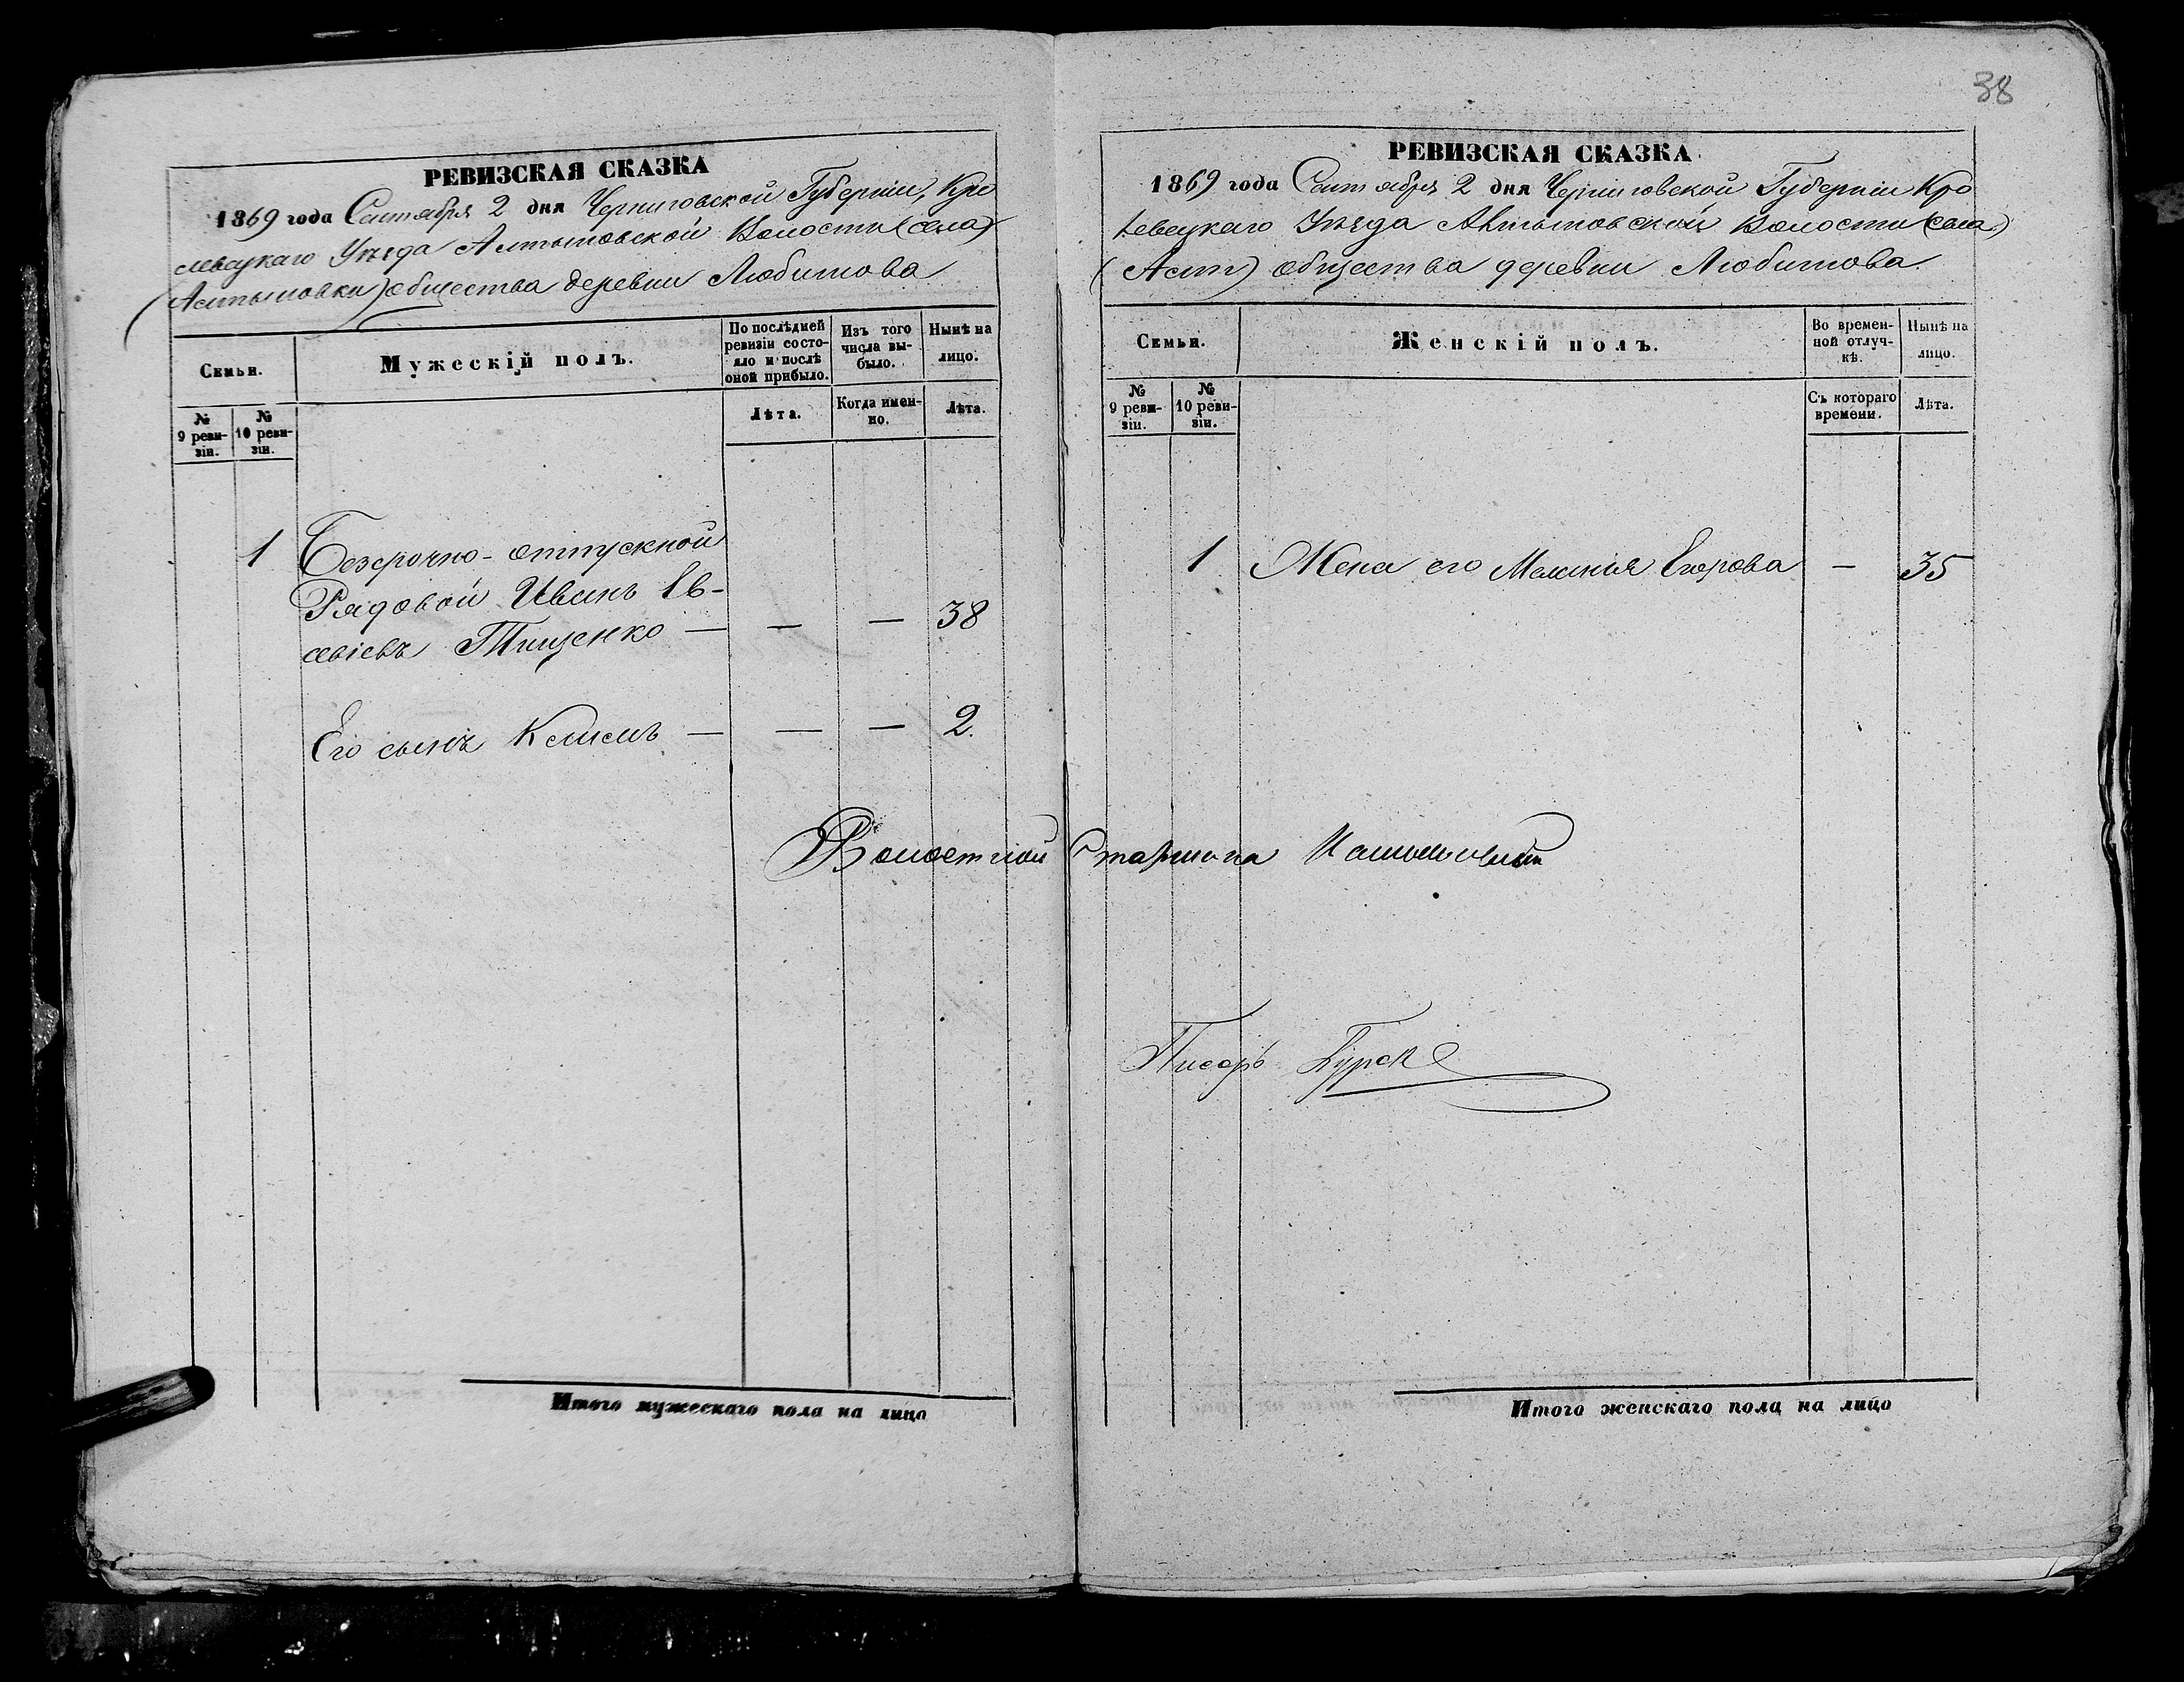 38
РЕВИЗСКАЯ СКАЗКА
1869 года Сентября 2 дня Черниговской Губерніи, Кро
левецкаго Уѣзда Алтыновской Волости (села)
(Алтыновки) общества деревни Любитова
Семьи.
Мужескій полъ.
По послѣдней ревизіи состояло и послѣ оной прибыло.
Изъ того числа выбыло.
Нынѣ на лицо.
№ 9 ревизіи.
№ 10 ревизіи.
Лѣта.
Когда именно.
Лѣта.
1 Безсрочно-отпускной
Рядовой Иванъ Ев-
сѣевъ Тищенко — — — 38
Его сынъ — — — 2.
Итого мужескаго пола на лицо
РЕВИЗСКАЯ СКАЗКА.
1869 года Сентября 2 дня Черниговской Губерніи Кро
левецкаго Уѣзда Алтыновской Волости (села)
(Алт) общества деревни Любитова.
Семьи.
Женскій полъ.
Во временной отлучкѣ.
Нынѣ на лицо.
№ 9 ревизіи.
№ 10 ревизіи.
Съ котораго времени.
Лѣта.
1 Жена его Меланія Егорова — 35
Волостной Старшина
Писарь
Итого женскаго пола на лицо